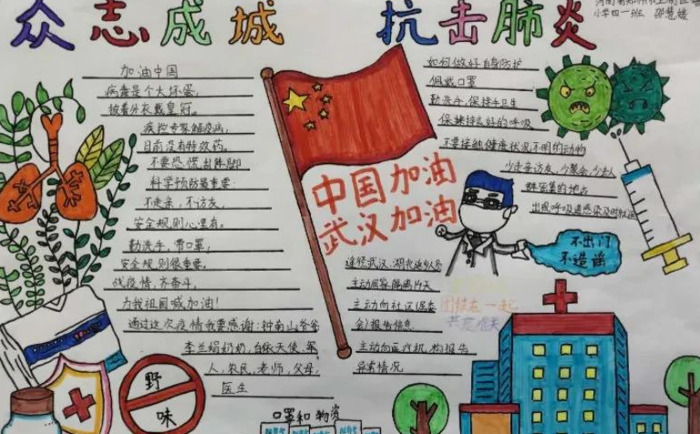 众志成城 抗击肺炎
小学四一班
加油中国
病毒是个大坏蛋,
披着外衣戴皇冠。
疾控专家细侦病,
目前没有特效药。
不要恐慌乱阵脚
科学预防最重要:
不走亲,不访友,
安全规则心里有。
勤洗手,带口罩,
安全规则很重要。
战疫情,齐奋斗,
为我祖国喊加油!
通过这次疫情我要感谢:钟南山爷爷
李兰娟奶奶,白衣天使,军
人,农民,老师,父母,
医生
野味
口罩和物资
中国加油
武汉加油
如何做好自身防护
佩戴口罩
勤洗手,保持手卫生
保持良好的呼吸
不要接触健康状况不明的动物
少走亲访友,少聚会,少去人
群密集的地点
出现呼吸道感染及时就医
不出门
不造谣
途径武汉、湖北返乡人员
主动居家隔离14天
主动向社区(居委
会)报告信息
主动向医疗机构报告
异常情况
团结在一起
共克难关